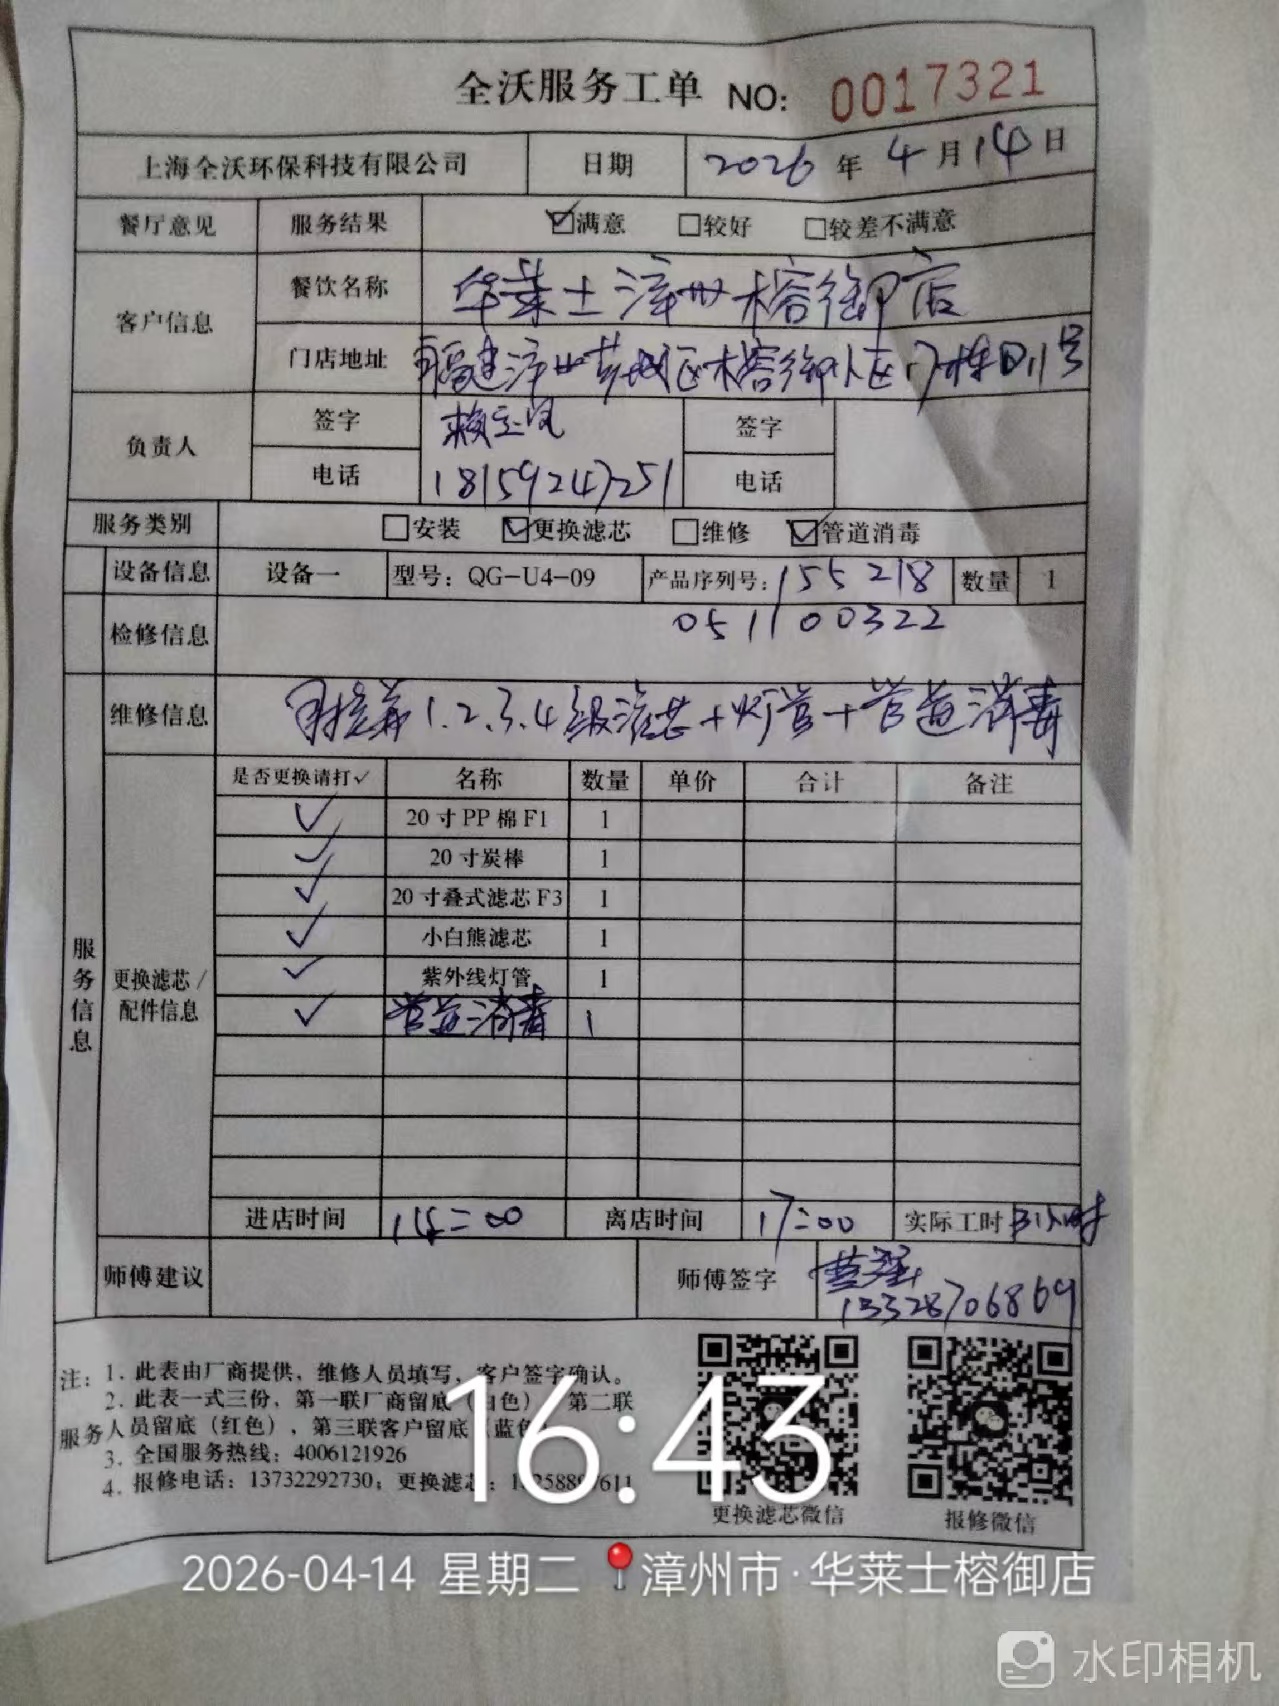 全沃服务工单 NO: 0017321
上海全沃环保科技有限公司 日期 2026年4月14日
餐厅意见 服务结果 ☑满意 □较好 □较差不满意
客户信息 餐饮名称 华莱士漳州榕御店
门店地址 福建漳州芗城区榕御小区 11号
负责人 签字 签字
电话 18159247251 电话
服务类别 □安装 ☑更换滤芯 □维修 ☑管道消毒
设备信息 设备一 型号：QG-U4-09 产品序列号：155218 数量 1
051100322
检修信息
维修信息 1.2.3.4级滤芯+灯管+管道消毒
服务信息
更换滤芯/配件信息
是否更换请打✓ 名称 数量 单价 合计 备注
✓ 20寸PP棉F1 1
✓ 20寸炭棒 1
✓ 20寸叠式滤芯F3 1
✓ 小白熊滤芯 1
✓ 紫外线灯管 1
✓ 管道消毒 1
进店时间 14:00 离店时间 17:00 实际工时 3小时
师傅建议 师傅签字
13328706869
注：1. 此表由厂商提供，维修人员填写，客户签字确认。
2. 此表一式三份，第一联厂商留底（白色），第二联
服务人员留底（红色），第三联客户留底（蓝色
3. 全国服务热线：4006121926
4. 报修电话：13732292730；更换滤芯：
更换滤芯微信 报修微信
16:43
2026-04-14 星期二 漳州市·华莱士榕御店
水印相机